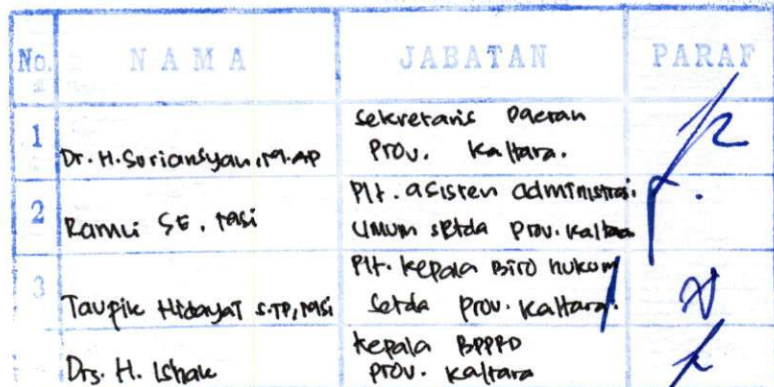 No. NAMA JABATAN PARAF
1 Dr. H. Suriansyah, M.AP Sekretaris Daerah
Prov. Kaltara.
2 Ramli SE, MSi Plt. asisten administrasi
umum setda prov. kaltara
3 Taupik Hidayat S.TP, MSi Plt. kepala Biro hukum
Setda prov. kaltara.
Drs. H. Ishak kepala BPPRD
prov. kaltara